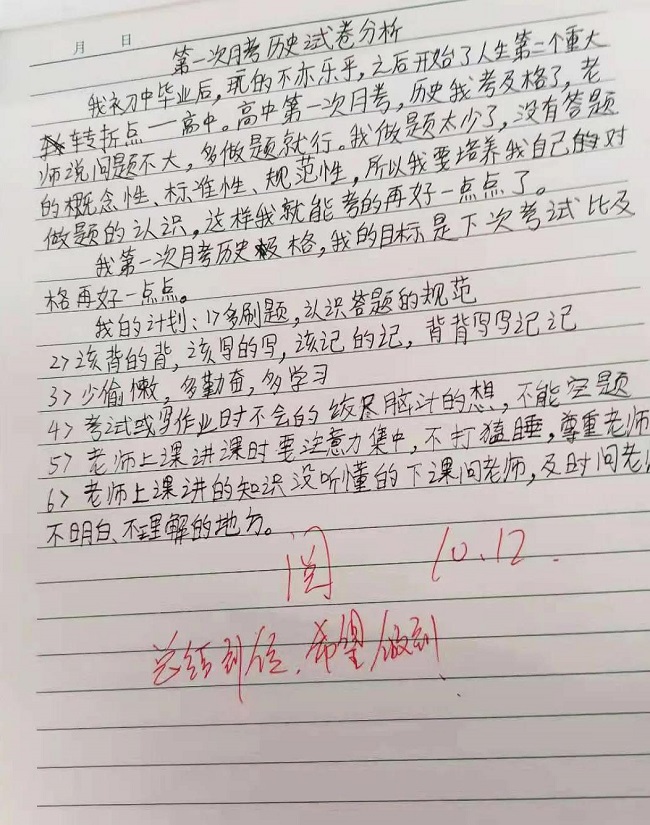 月 日
第一次月考历史试卷分析
我衣初中毕业后,玩的不亦乐乎,之后开始了人生第二个重大
转折点一高中。高中第一次月考,历史我考及格了,老
师说问题不大,多做题就行。我做题太少了,没有答题
的概念性、标准性、规范性,所以我要培养我自己的对
做题的认识,这样我就能考的再好一点点了。
我第一次月考历史及格,我的目标是下次考试比及
格再好一点点。
我的计划:1>多刷题,认识答题的规范
2>该背的背,该写的写,该记的记,背背写写记记
3>少偷懒,多勤奋,多学习
4>考试或写作业时不会的绞尽脑汁的想,不能空题
5>老师上课讲课时要注意力集中,不打瞌睡,尊重老师
6>老师上课讲的知识没听懂的下课问老师,及时问老
不明白、不理解的地方。
阅 10.12.
总结到位,希望做到